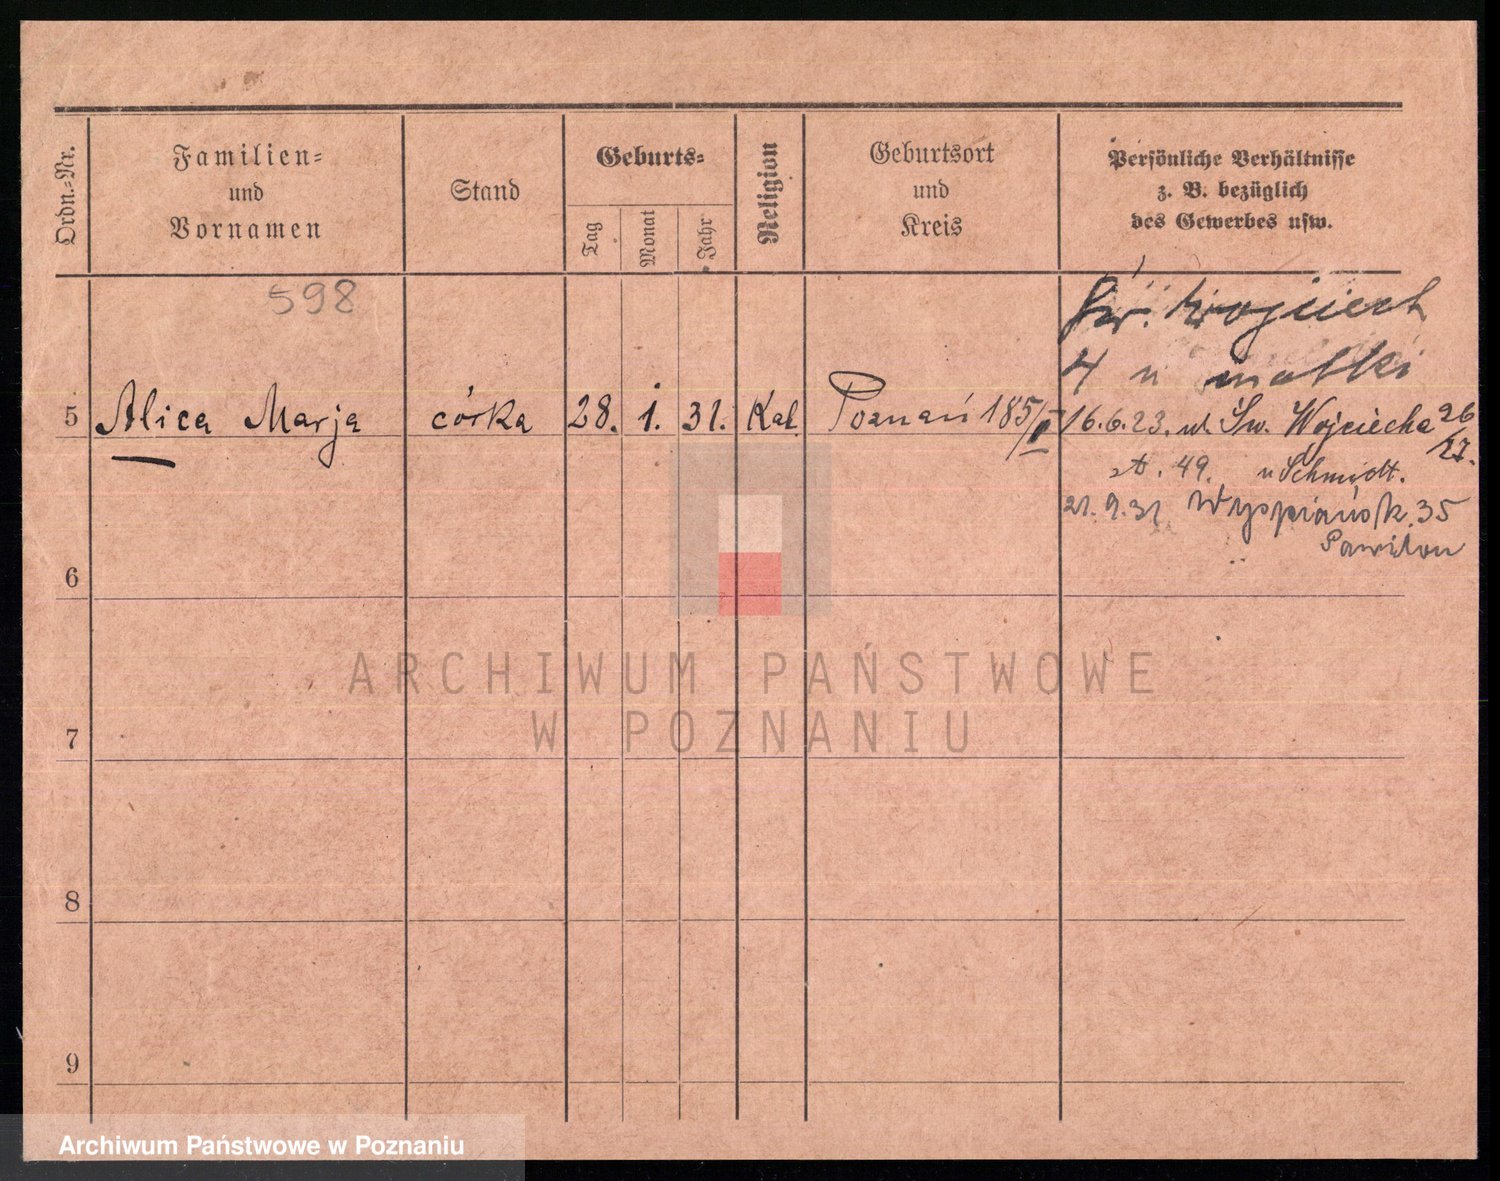 Ordn.-Nr.
Familien-
und
Vornamen
Stand
Geburts-
Tag
Monat
Jahr
Religion
Geburtsort
und
Kreis
Persönliche Verhältnisse
z. B. bezüglich
des Gewerbes usw.
598
Św. Wojciech
4 u matki
5 Alica Marja córka 28. 1. 31. Kat. Poznań 185/II 16.6.23. ul. Św. Wojciecha 26
/27.
49. u Schmidt.
21.9.31 Wyspiańsk. 35
Pawilon
6
7
8
9
ARCHIWUM PAŃSTWOWE
W POZNANIU
Archiwum Państwowe w Poznaniu